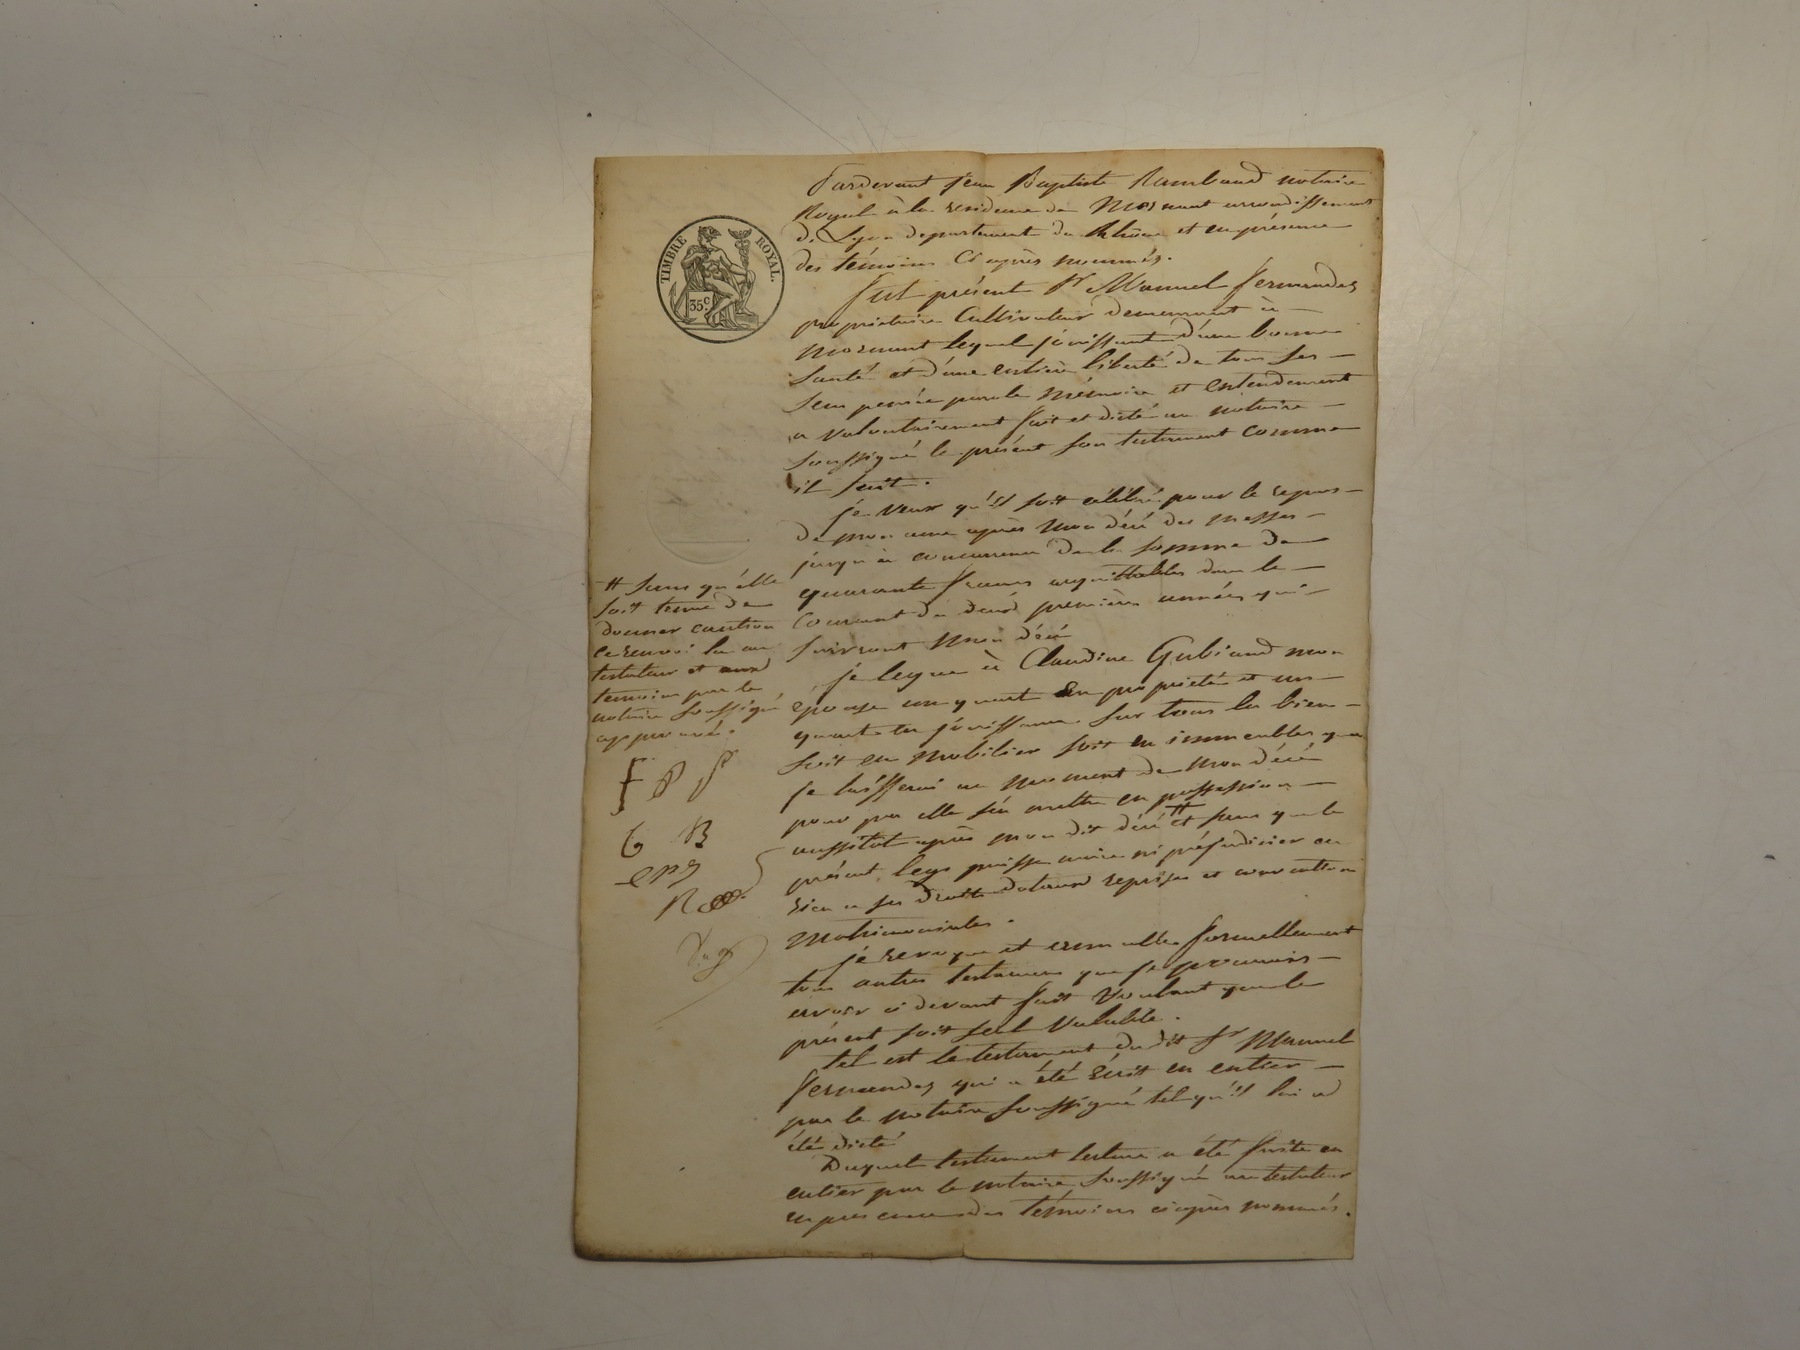 Pardevant Jean Baptiste Rambaud notaire
Royal à la residence de Mornant arrondissement
de Lyon departement du Rhône et en présence
des témoins ci après nommés.
TIMBRE ROYAL.
35c.
fut présent Sr Manuel fernandes
propriétaire Cultivateur demeurant à
Mornant lequel jouissant d'une bonne
santé et d'une entière liberté de tous ses
sens pensée parole mémoire et entendement
a volontairement fait et dicté au notaire
soussigné le présent son testament comme
il suit.
je veux qu'il soit célébré pour le repos
de mon ame après mon décé des messes
jusqu'à concurrence de la somme de
quarante francs acquittables dans le
Courant des deux premières années qui
suivront mon décé
je legue à Claudine Gubiand mon
épouse un quart en propriété et un
quart en jouissance sur tous les biens
soit en mobilier soit en immeubles que
je laisserai au moment de mon décé
pour par elle s'en mettre en possession
aussitot après mon dit décé # et sans que le
présent legs puisse nuire ni préjudicier en
rien a ses droits dotaux reprises et convention
matrimoniales.
# sans qu'elle
soit tenue de
donner caution
ce renvoi lu au
testateur et aux
temoins par le
notaire soussigné
approuvé.
f P f
G B
R
je revoque et annulle formellement
tous autres testamens que je pourrais
avoir ci devant fait voulant que le
présent soit seul valable.
tel est le testament du dit Sr Manuel
fernandes qui a été écrit en entier
par le notaire soussigné tel qu'il lui a
été dicté
Duquel testament lecture a été faite en
entier par le notaire soussigné au testateur
en presence des témoins ci après nommés.